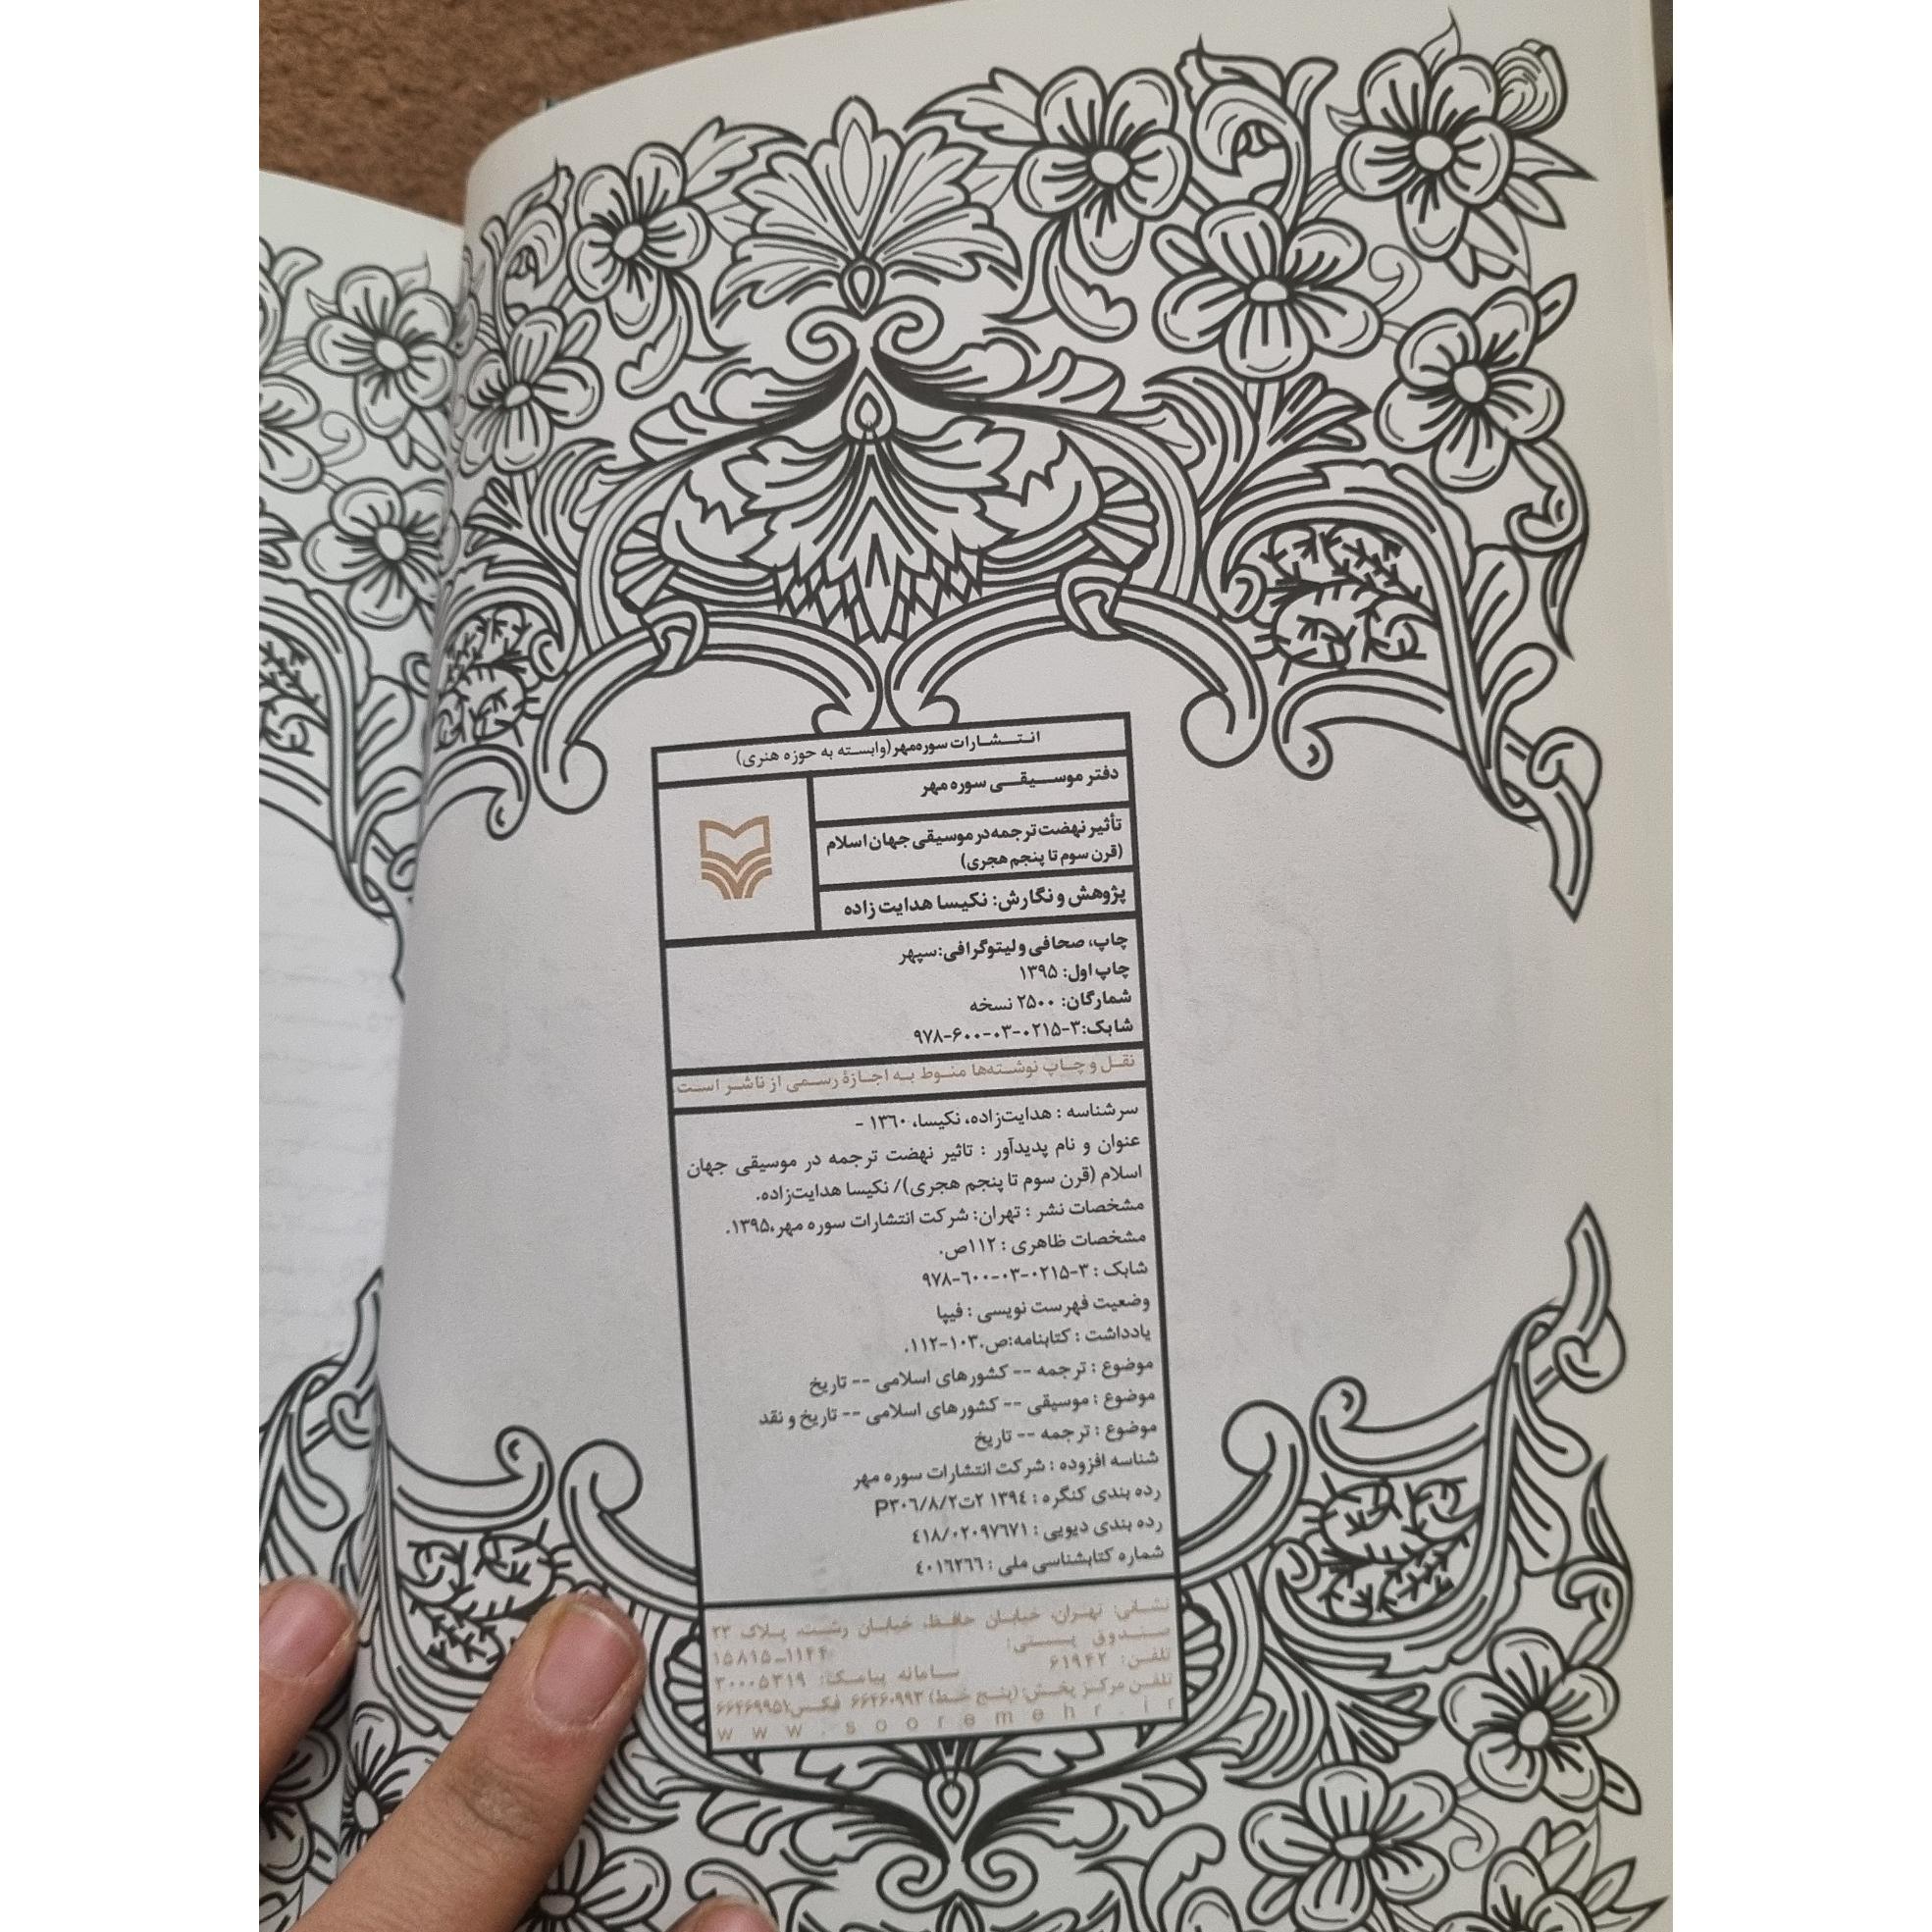 انتشارات سوره‌مهر(وابسته به حوزه هنری)
دفتر موسیقی سوره مهر
تأثیر نهضت ترجمه در موسیقی جهان اسلام
(قرن سوم تا پنجم هجری)
پژوهش و نگارش: نکیسا هدایت زاده
چاپ، صحافی و لیتوگرافی:سپهر
چاپ اول: ۱۳۹۵
شمارگان: ۲۵۰۰ نسخه
شابک:۳-۰۲۱۵-۰۳-۶۰۰-۹۷۸
نقل و چاپ نوشته‌ها منوط به اجازهٔ رسمی از ناشر است.
سرشناسه : هدایت‌زاده، نکیسا، ۱۳٦۰ -
عنوان و نام پدیدآور : تاثیر نهضت ترجمه در موسیقی جهان
اسلام (قرن سوم تا پنجم هجری)/ نکیسا هدایت‌زاده.
مشخصات نشر : تهران: شرکت انتشارات سوره مهر،۱۳۹۵.
مشخصات ظاهری : ۱۱۲ص.
شابک : ۳-۰۲۱۵-۰۳-٦۰۰-۹۷۸
وضعیت فهرست نویسی : فیپا
یادداشت : کتابنامه:ص.۱۰۳-۱۱۲.
موضوع : ترجمه -- کشورهای اسلامی -- تاریخ
موضوع : موسیقی -- کشورهای اسلامی -- تاریخ و نقد
موضوع : ترجمه -- تاریخ
شناسه افزوده : شرکت انتشارات سوره مهر
رده بندی کنگره : ۱۳۹٤ ۲ت۲/۸/P۳۰٦
رده بندی دیویی : ٤۱۸/۰۲۰۹۷٦۷۱
شماره کتابشناسی ملی : ٤۰۱٦۲٦٦
نشانی: تهران، خیابان حافظ، خیابان رشت، پلاک ۲۳
صندوق پستی: ۱۱۴۴-۱۵۸۱۵
تلفن: ۶۱۹۴۲ سامانه پیامک: ۳۰۰۰۵۳۱۹
تلفن مرکز پخش: (پنج خط) ۶۶۴۶۰۹۹۳ فکس:۶۶۴۶۹۹۵۱
www.sooremehr.ir